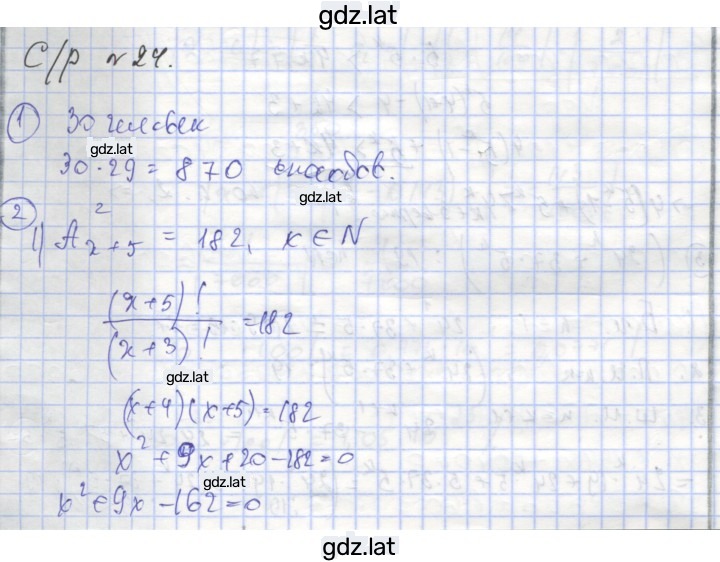 gdz.lat
С/р №24.
① 30 человек
gdz.lat
30·29 = 870 способов.
gdz.lat
② 1) A²ₓ₊₅ = 182, x ∈ N
(x+5)! / (x+3)! = 182
gdz.lat
(x+4)(x+5) = 182
x² + 9x + 20 - 182 = 0
gdz.lat
x² + 9x - 162 = 0
gdz.lat
gdz.lat